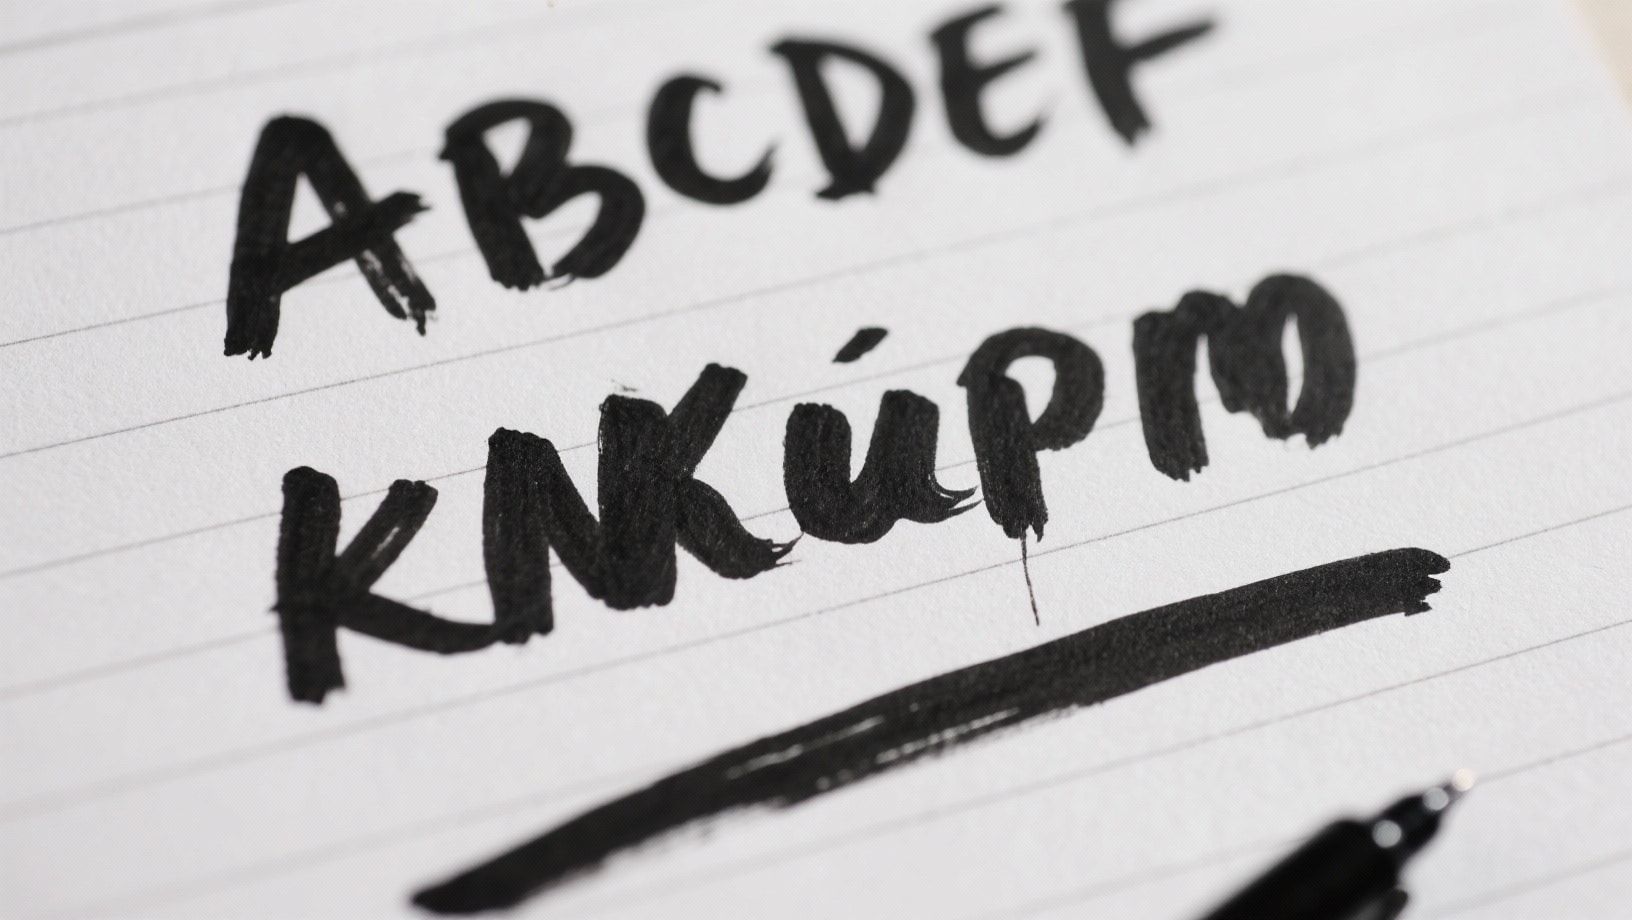 ABCDEF
KNKúpm